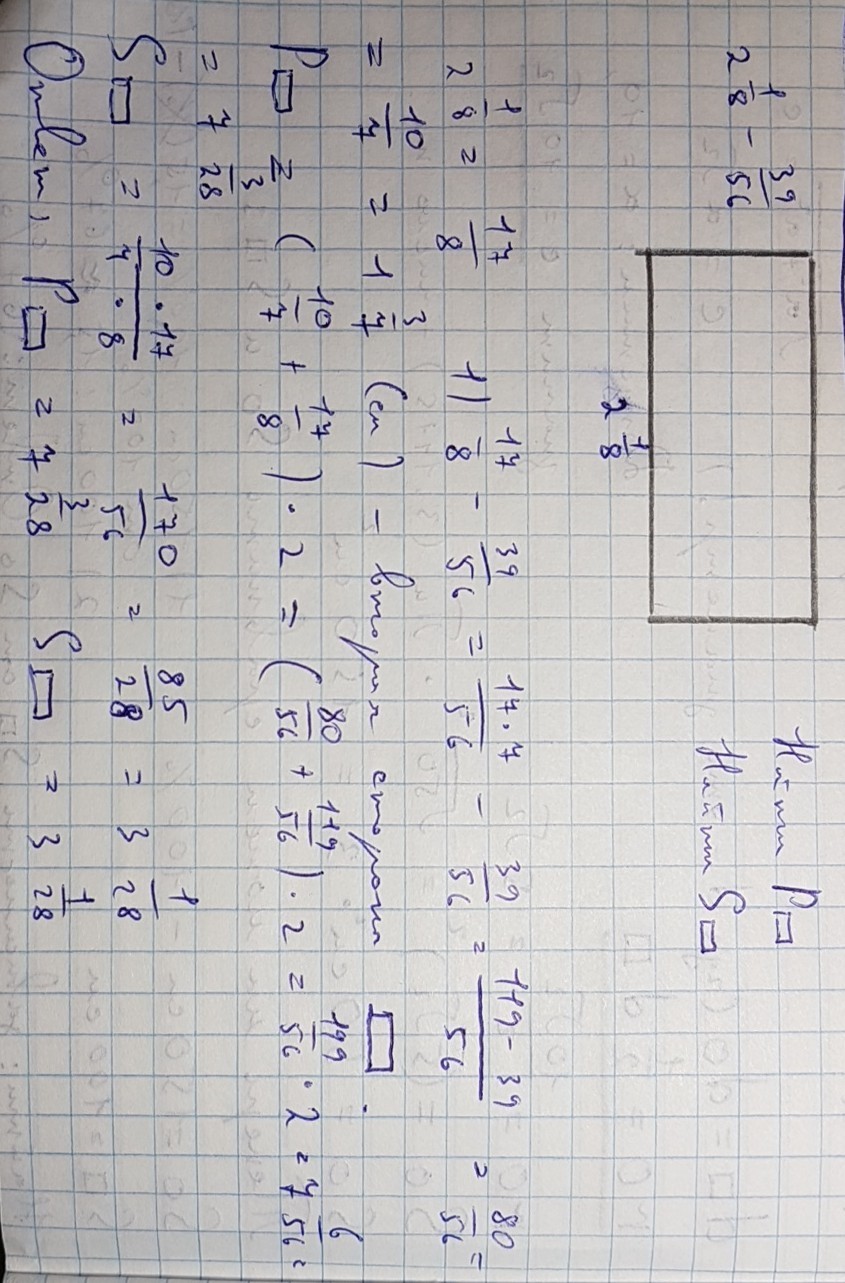 2 1/8 - 39/56
Найти P▭
2 1/8
Найти S▭
2 1/8 = 17/8 1) 17/8 - 39/56 = 17·7/56 - 39/56 = 119-39/56 = 80/56 =
= 10/7 = 1 3/7 (см) - вторая сторона ▭.
P▭ = (10/7 + 17/8) · 2 = (80/56 + 119/56) · 2 = 199/56 · 2 = 7 6/56 =
= 7 3/28
S▭ = 10·17/7·8 = 170/56 = 85/28 = 3 1/28
Ответ: P▭ = 7 3/28 S▭ = 3 1/28